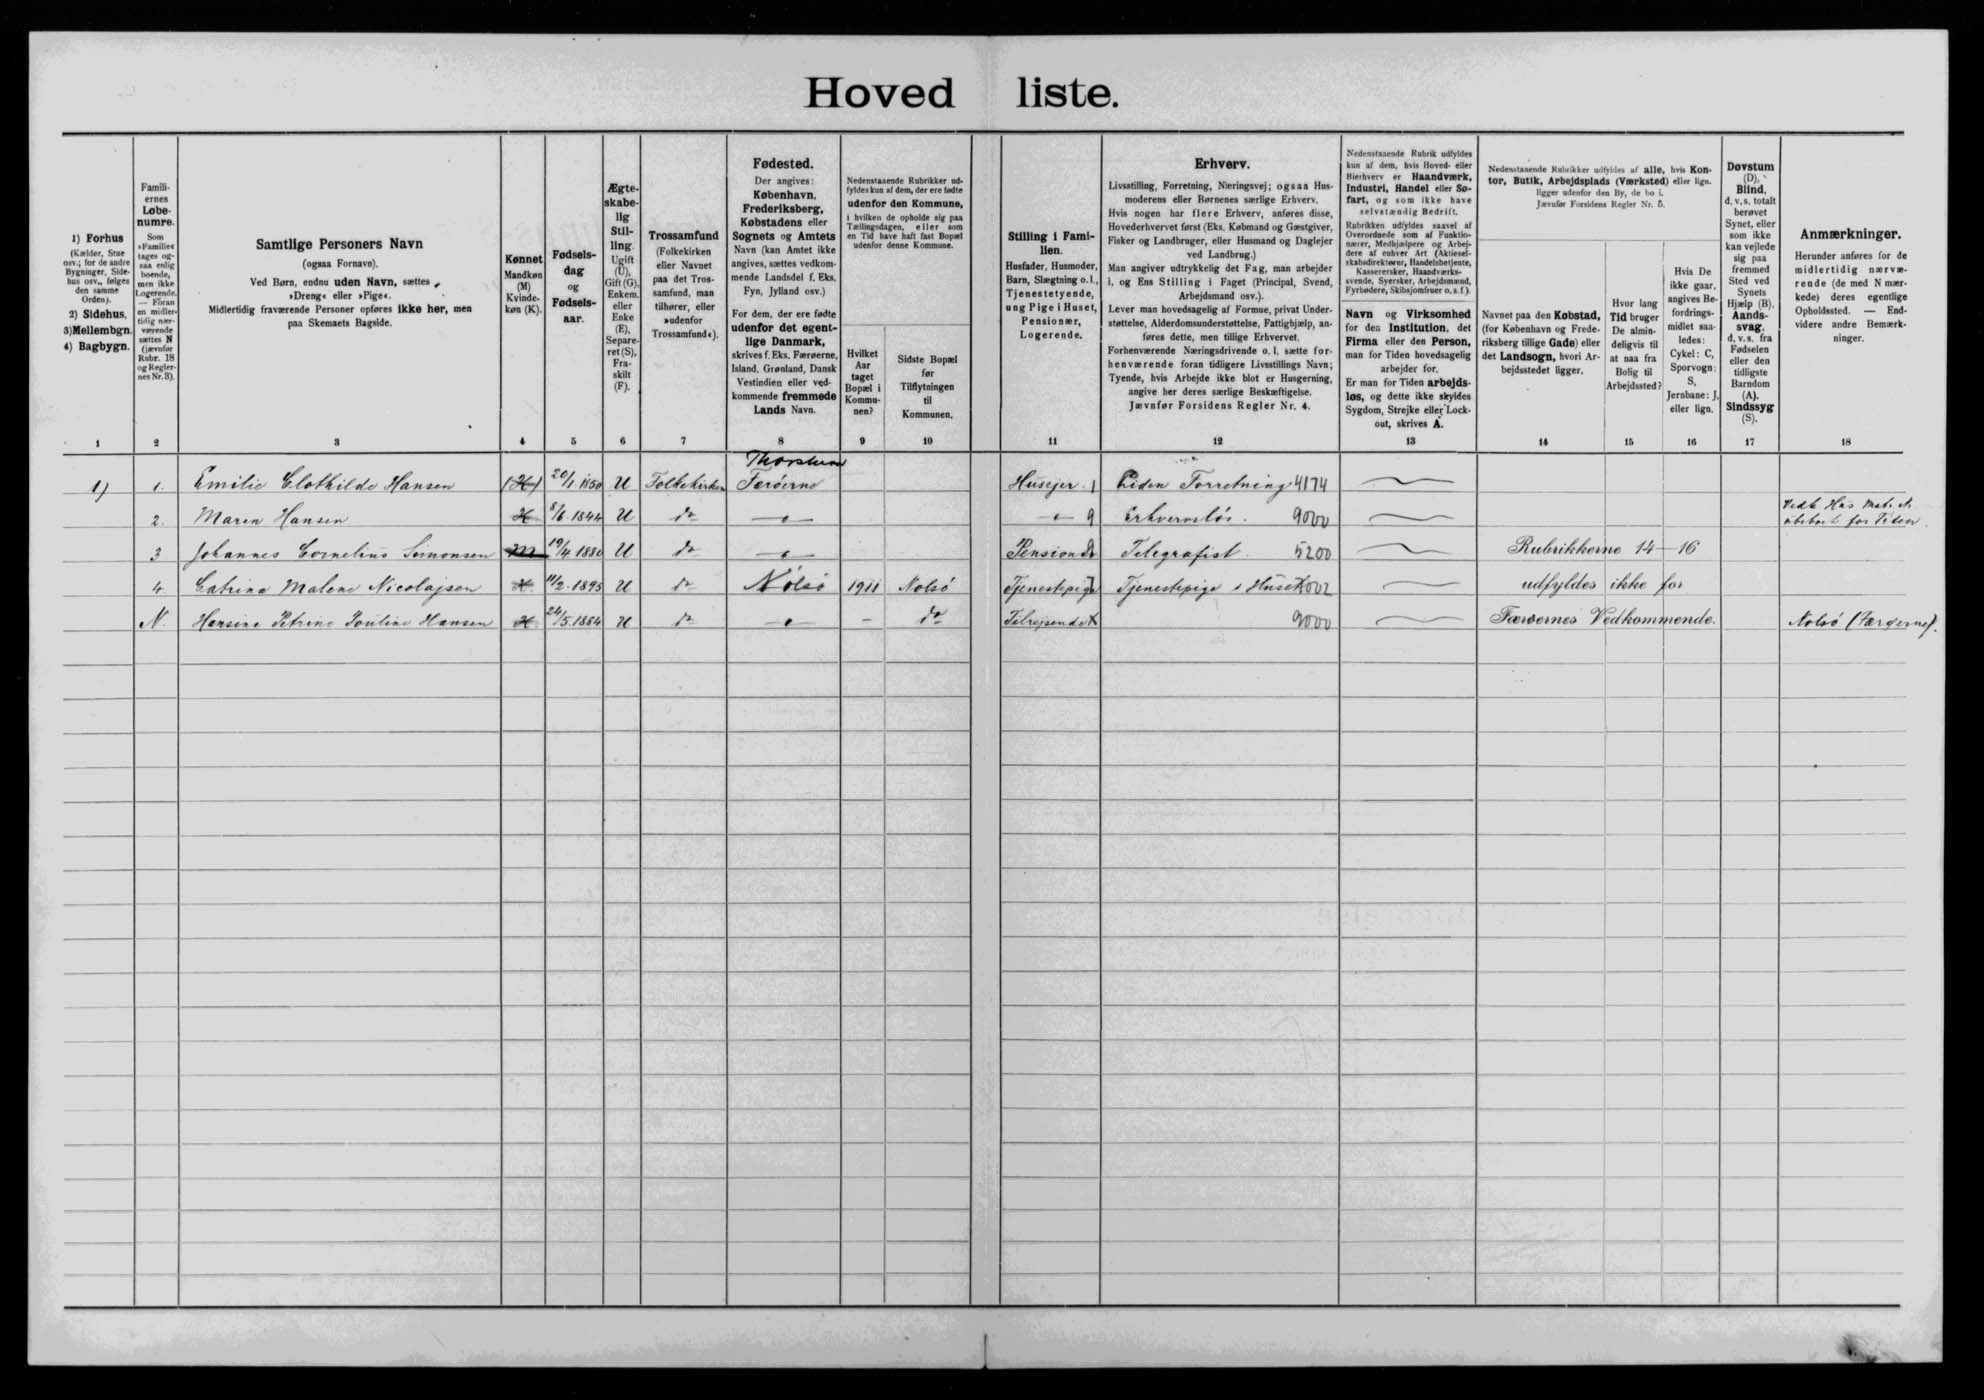 Hoved liste.
1) Forhus
(Kælder, Stue
osv.; for de andre
Bygninger, Side-
hus osv., følges
den samme
Orden).
2) Sidehus,
3) Mellembgn.
4) Bagbygn.
Famili-
ernes
Løbe-
numre.
Som
»Familie«
tages og-
saa enlig
boende,
men ikke
Logerende.
— Foran
en midler-
tidig nær-
værende
sættes N
(jævnfør
Rubr. 18
og Regler-
nes Nr. 3).
Samtlige Personers Navn
(ogsaa Fornavn).
Ved Børn, endnu uden Navn, sættes
»Dreng« eller »Pige«.
Midlertidig fraværende Personer opføres ikke her, men
paa Skemaets Bagside.
Kønnet
Mandkøn
(M)
Kvinde-
køn (K).
Fødsels-
dag
og
Fødsels-
aar.
Ægte-
skabe-
lig
Stil-
ling.
Ugift
(U),
Gift (G),
Enkem.
eller
Enke
(E),
Separe-
ret (S),
Fra-
skilt
(F).
Trossamfund
(Folkekirken
eller Navnet
paa det Tros-
samfund, man
tilhører, eller
»udenfor
Trossamfund«).
Fødested.
Der angives:
København,
Frederiksberg,
Købstadens eller
Sognets og Amtets
Navn (kan Amtet ikke
angives, sættes vedkom-
mende Landsdel f. Eks.
Fyn, Jylland osv.)
For dem, der ere fødte
udenfor det egent-
lige Danmark,
skrives f. Eks. Færøerne,
Island, Grønland, Dansk
Vestindien eller ved-
kommende fremmede
Lands Navn.
Nedenstaaende Rubrikker ud-
fyldes kun af dem, der ere fødte
udenfor den Kommune,
i hvilken de opholde sig paa
Tællingsdagen, eller som
en Tid have haft fast Bopæl
udenfor denne Kommune.
Hvilket
Aar
taget
Bopæl i
Kommu-
nen?
Sidste Bopæl
før
Tilflytningen
til
Kommunen.
Stilling i Fami-
lien.
Husfader, Husmoder,
Barn, Slægtning o. l.,
Tjenestetyende,
ung Pige i Huset,
Pensionær,
Logerende.
Erhverv.
Livsstilling, Forretning, Næringsvej; ogsaa Hus-
moderens eller Børnenes særlige Erhverv.
Hvis nogen har flere Erhverv, anføres disse,
Hovederhvervet først (Eks. Købmand og Gæstgiver,
Fisker og Landbruger, eller Husmand og Daglejer
ved Landbrug.)
Man angiver udtrykkelig det Fag, man arbejder
i, og Ens Stilling i Faget (Principal, Svend,
Arbejdsmand osv.).
Lever man hovedsagelig af Formue, privat Under-
støttelse, Alderdomsunderstøttelse, Fattighjælp, an-
føres dette, men tillige Erhvervet.
Forhenværende Næringsdrivende o. l. sætte for-
henværende foran tidligere Livsstillings Navn;
Tyende, hvis Arbejde ikke blot er Husgerning,
angive her deres særlige Beskæftigelse.
Jævnfør Forsidens Regler Nr. 4.
Nedenstaaende Rubrik udfyldes
kun af dem, hvis Hoved- eller
Bierhverv er Haandværk,
Industri, Handel eller Sø-
fart, og som ikke have
selvstændig Bedrift.
Rubrikken udfyldes saavel af
Overordnede som af Funktio-
nærer, Medhjælpere og Arbej-
dere af enhver Art (Aktiesel-
skabsdirektører, Handelsbetjente,
Kasserersker, Haandværks-
svende, Syersker, Arbejdsmænd,
Fyrbødere, Skibsjomfruer o. s. f.).
Navn og Virksomhed
for den Institution, det
Firma eller den Person,
man for Tiden hovedsagelig
arbejder for.
Er man for Tiden arbejds-
løs, og dette ikke skyldes
Sygdom, Strejke eller Lock-
out, skrives A.
Nedenstaaende Rubrikker udfyldes af alle, hvis Kon-
tor, Butik, Arbejdsplads (Værksted) eller lign.
ligger udenfor den By, de bo i.
Jævnfør Forsidens Regler Nr. 5.
Navnet paa den Købstad,
(for København og Frede-
riksberg tillige Gade) eller
det Landsogn, hvori Ar-
bejdsstedet ligger.
Hvor lang
Tid bruger
De almin-
deligvis til
at naa fra
Bolig til
Arbejdssted?
Hvis De
ikke gaar,
angives Be-
fordrings-
midlet saa-
ledes:
Cykel: C,
Sporvogn:
S,
Jernbane: J,
eller lign.
Døvstum
(D),
Blind,
d. v. s. totalt
berøvet
Synet, eller
som ikke
kan vejlede
sig paa
fremmed
Sted ved
Synets
Hjælp (B).
Aands-
svag,
d. v. s. fra
Fødselen
eller den
tidligste
Barndom
(A).
Sindssyg
(S).
Anmærkninger.
Herunder anføres for de
midlertidig nærvæ-
rende (de med N mær-
kede) deres egentlige
Opholdssted. — End-
videre andre Bemærk-
ninger.
1 2 3 4 5 6 7 8 9 10 11 12 13 14 15 16 17 18
Thorshavn
1) 1. Emilie Clothilde Hansen (K) 20/1. 1850 U Folkekirken Færøerne Husejer 1 Liden Forretning 4174
2. Maren Hansen K 8/6. 1844 U do —„— —„— 9 Erhvervsløs. 9000 Vedk Hus Matr. No
ubeboet for Tiden.
3 Johannes Cornelius Simonsen M 19/4 1880 U do —„— Pensionær Telegrafist. 5200 Rubrikkerne 14—16
4. Catrina Malene Nicolajsen K 11/2. 1895 U do Nolsö 1911 Nolsö Tjenestepige Tjenestepige i Huset udfyldes ikke for
N. Hansine Petrine Pouline Hansen K 24/5. 1884 U do —„— — do Tilrejsende X 9000 Færøernes Vedkommende. Nolsö (Færøerne).